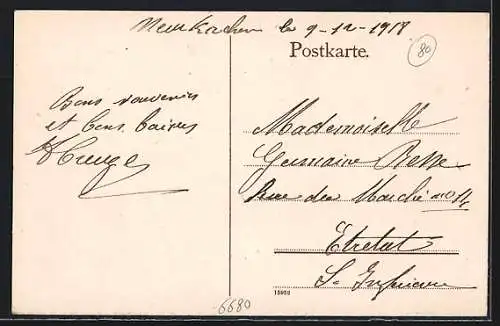 Neunkirchen le 9-12-1918
Postkarte.
80
Bons souvenirs
et bons baisers
Mademoiselle
Germaine Besse
Rue du Marché no
Etretat
S. Inférieure
15909
6680